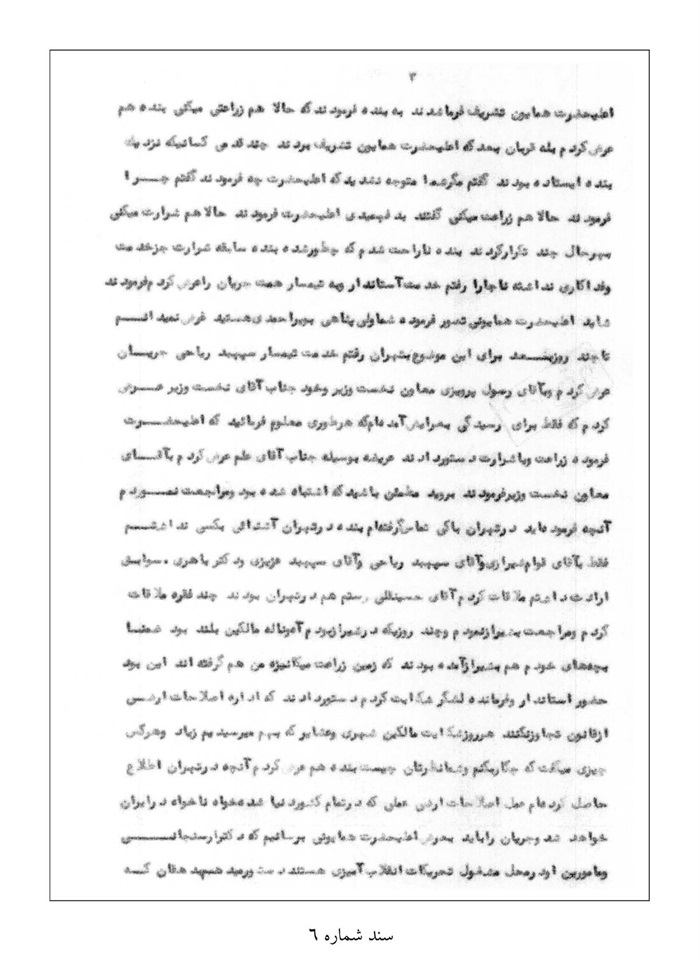 ۳
اعلیحضرت همایون تشریف فرما شدند به بنده فرمودند که حالا هم زراعتی میکنی بنده هم
عرض کردم بله قربان بعد که اعلیحضرت همایون تشریف بردند چند قدمی کسانیکه نزدیک
بنده ایستاده بودند گفتم مگر شما متوجه نشدید که اعلیحضرت چه فرمودند گفتم چرا
فرمودند حالا هم زراعت میکنی گفتند بد فهمیدی اعلیحضرت فرمودند حالا هم شرارت میکنی
بهرحال چند تکرار کردند بنده ناراحت شدم که چطور شده بنده سابقه شرارت جز خدمت
وفداکاری نداشته ناچارا رفتم خدمت آستاندار وبه تیمسار همت جریان را عرض کردم فرمودند
شاید اعلیحضرت همایونی تصور فرموده شما ولی پناهی بویراحمدی هستید فرض نمیدانم
تا چند روز بعد برای این موضوع بتهران رفتم خدمت تیمسار سپهبد ریاحی جریان
عرض کردم وبآقای رسول پرویزی معاون نخست وزیر وخود جناب آقای نخست وزیر عرض
کردم که فقط برای رسیدگی بعرایض آمده‌ام که هرطوری معلوم فرمائید که اعلیحضرت
فرموده زراعت ویا شرارت دستور دادند عریضه بوسیله جناب آقای علم عرض کردم بآقای
معاون نخست وزیر فرمودند بروید مطمئن باشید که اشتباه شده بود ومراجعت نمودم
آنچه فرموداید در تهران باکی تماس گرفته‌ام بنده در تهران آشنائی بکسی نداشتم
فقط بآقای قوام شیرازی وآقای سپهبد ریاحی وآقای سپهبد عزیزی ودکتر باهری . سوابق
ارادت داشتم ملاقات کردم آقای حسینقلی رستم هم در تهران بودند چند فقره ملاقات
کردم ومراجعت بشیراز نمودم وچند روزیکه در شیراز بودم آه وناله مالکین بلند بود ضمنا
بچه‌های خودم هم بشیراز آمده بودند که زمین زراعت میکانیزه من هم گرفته اند این بود
حضور استاندار وفرمانده لشگر شکایت کردم دستور دادند که اداره اصلاحات ارضی
از قانون تجاوز نکنند هر روز شکایت مالکین شهری وعشایر که بهم میرسیدیم زیاد وهرکس
چیزی میگفت که چکار بکنم وشما نظرتان چیست بنده هم عرض کردم آنچه در تهران اطلاع
حاصل کرده‌ام عمل اصلاحات ارضی عملی که در تمام کشور دنیا شده خواه ناخواه در ایران
خواهد شد وجریان را باید بعرض اعلیحضرت همایونی برسانیم که دکتر ارسنجانی
ومامورین او در محل مشغول تحریکات انقلاب آمیزی هستند دستور میدهند دهقان که
سند شماره ۶